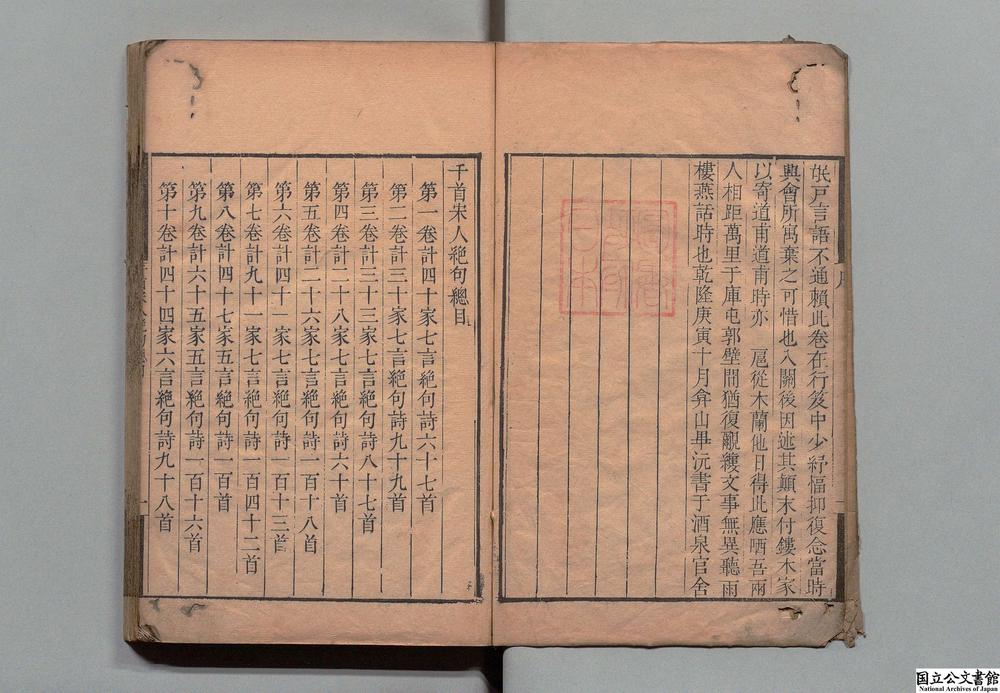 氓戸言語不通賴此卷在行笈中少紓愊抑復念當時
興會所寓棄之可惜也入關後因述其顛末付鏤木家
以寄道甫道甫時亦 扈從木蘭他日得此應哂吾兩
人相距萬里于庫屯郭壁間猶復覼縷文事無異聽雨
樓燕話時也乾隆庚寅十月弇山畢沅書于酒泉官舍
千首宋人絕句總目
第一卷計四十家七言絕句詩六十七首
第二卷計三十家七言絕句詩九十九首
第三卷計三十三家七言絕句詩八十七首
第四卷計二十八家七言絕句詩六十首
第五卷計二十六家七言絕句詩一百十八首
第六卷計四十一家七言絕句詩一百十三首
第七卷計九十一家七言絕句詩一百四十二首
第八卷計四十七家五言絕句詩一百首
第九卷計六十五家五言絕句詩一百十六首
第十卷計四十四家六言絕句詩九十八首
国立公文書館
National Archives of Japan